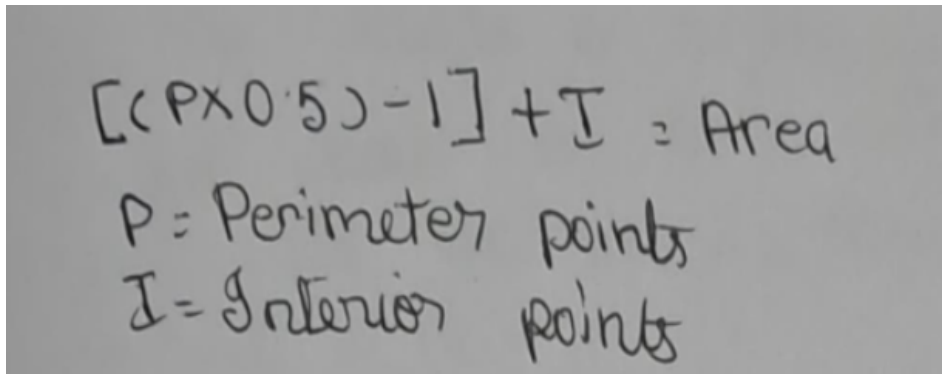 [(P×0.5)-1] + I = Area
P = Perimeter points
I = Interior points